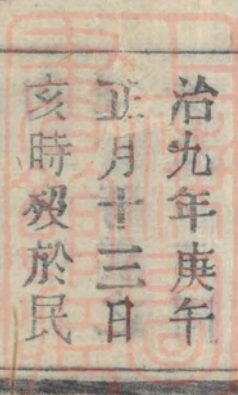 治九年庚午
正月十三日
亥時殁於民